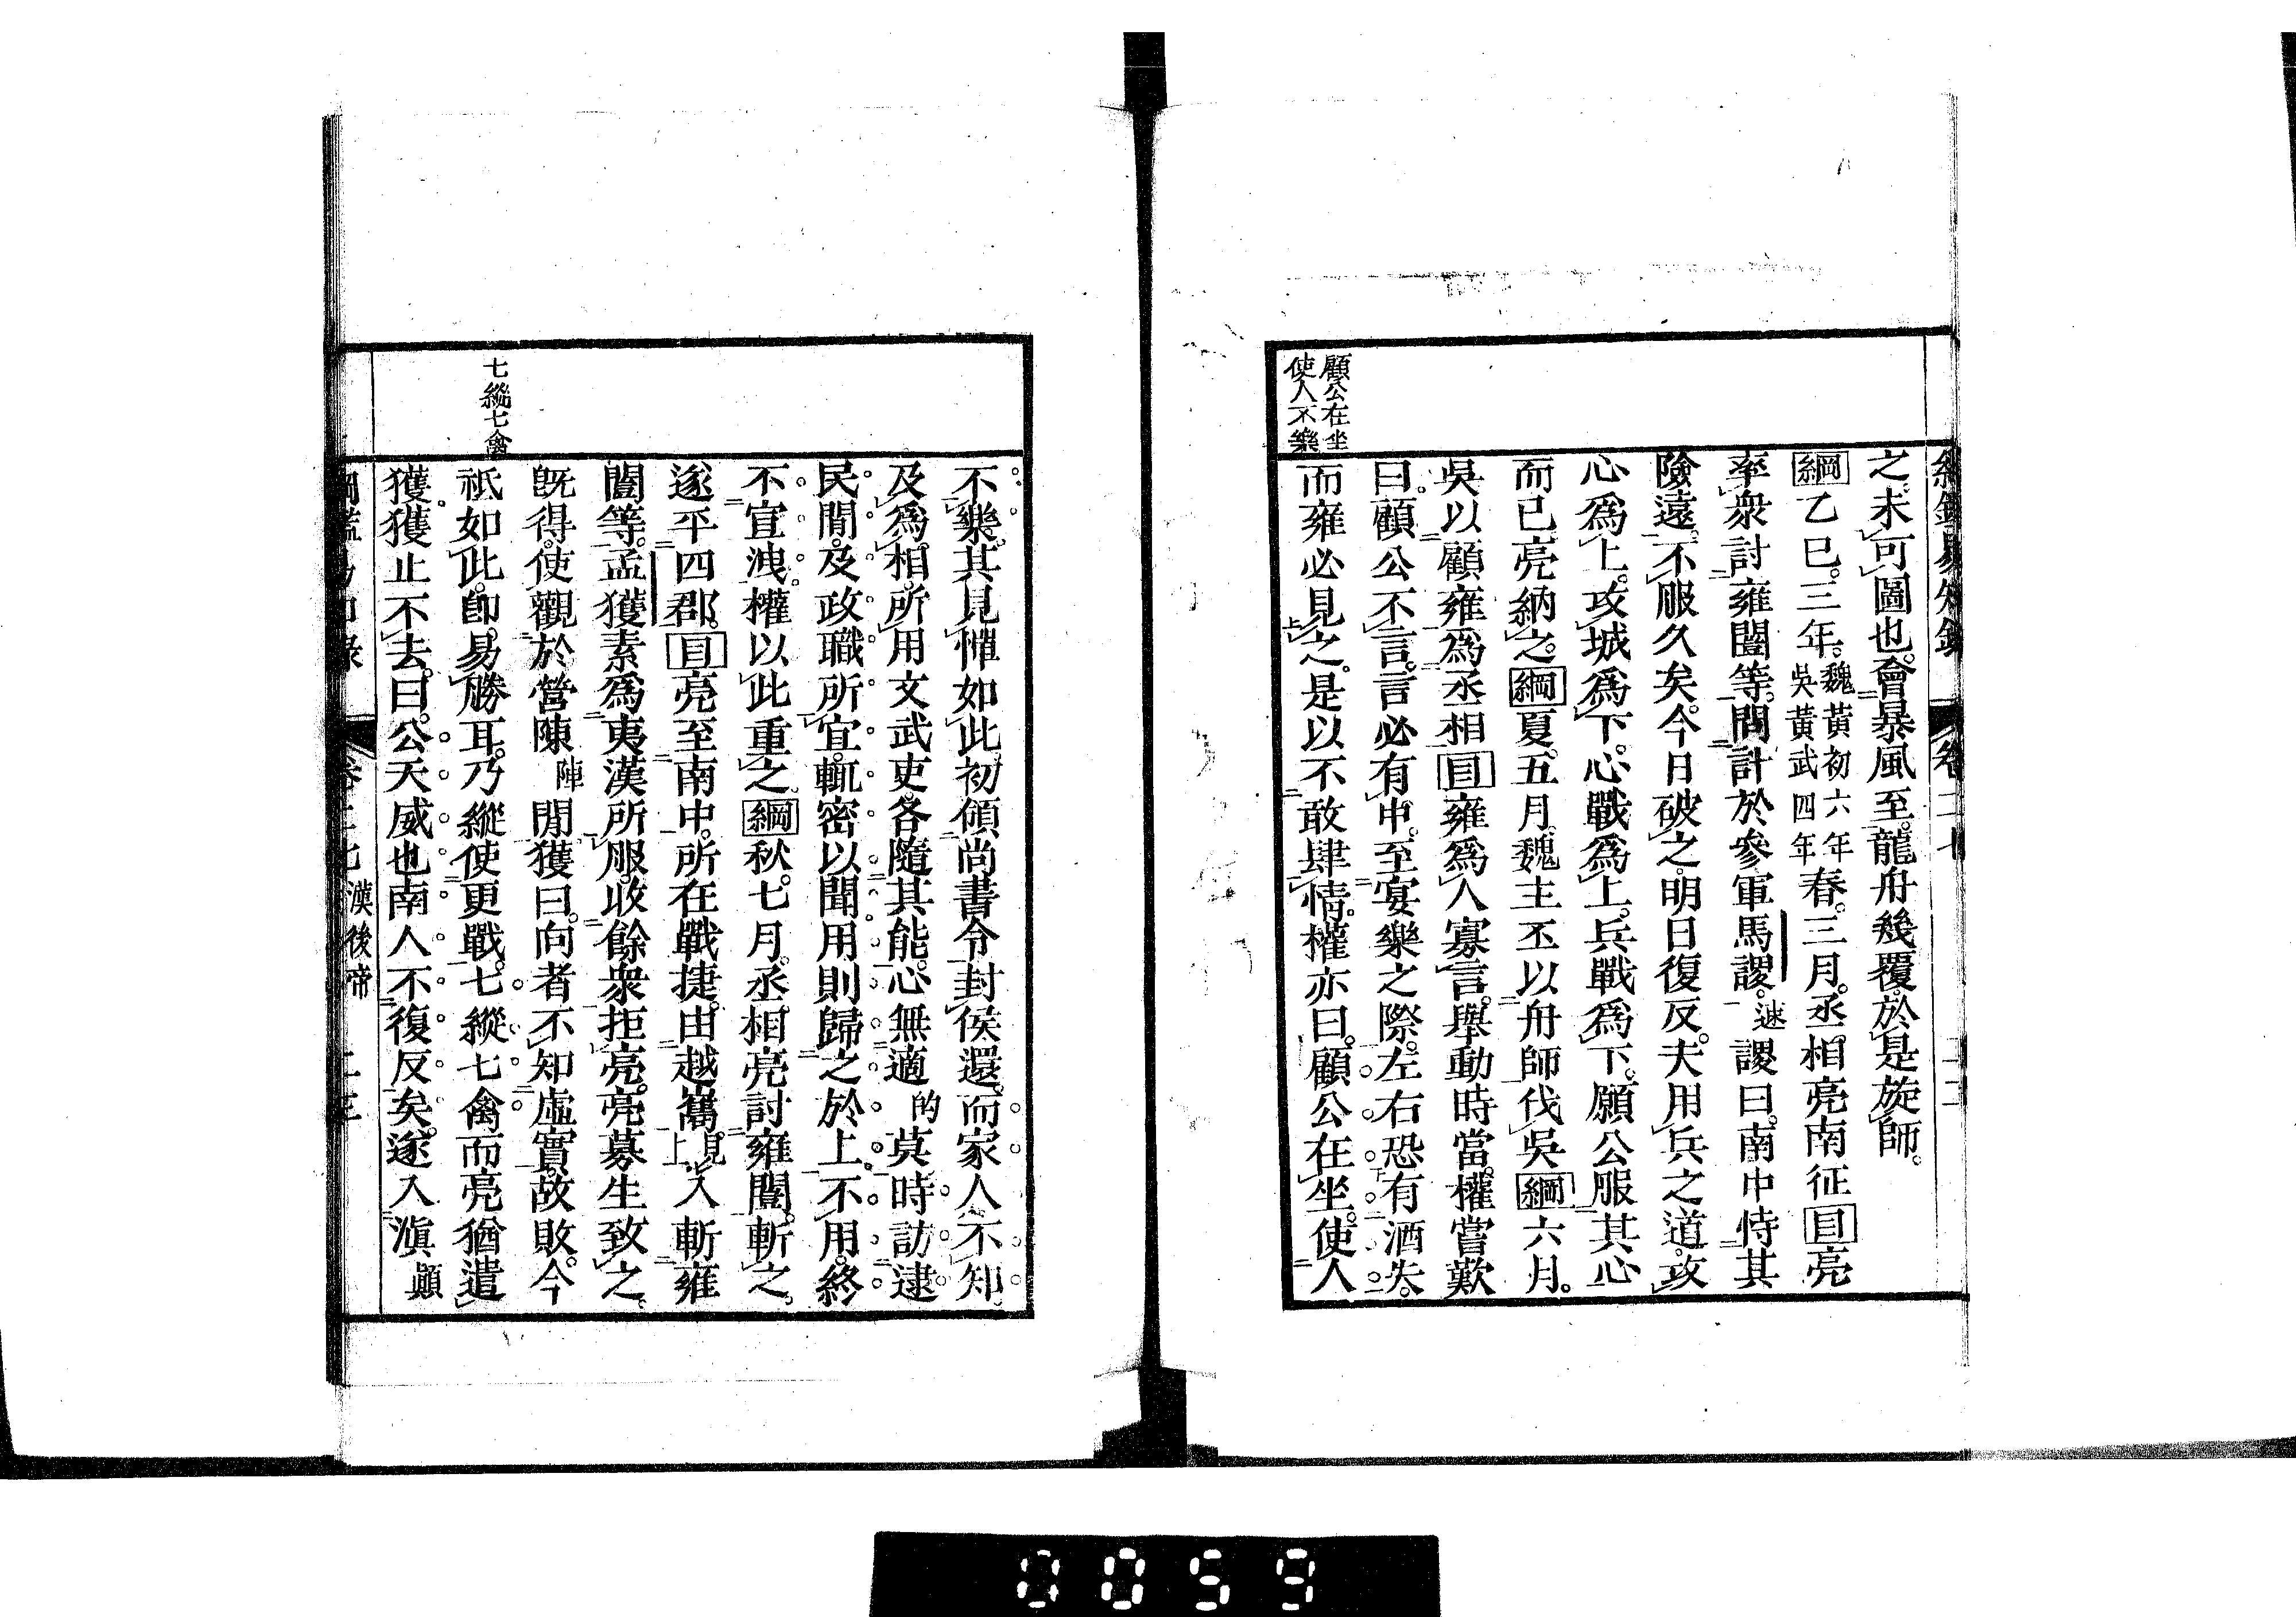 綱鑑易知錄 卷二七
之未可圖也會暴風至龍舟幾覆於是旋師
綱乙巳三年魏黃初六年吳黃武四年春三月丞相亮南征目亮
率衆討雍闓等問計於參軍馬謖速謖曰南中恃其
險遠不服久矣今日破之明日復反夫用兵之道攻
心爲上攻城爲下心戰爲上兵戰爲下願公服其心
而已亮納之綱夏五月魏主丕以舟師伐吳綱六月
吳以顧雍爲丞相目雍爲人寡言舉動時當權嘗歎
顧公在坐
使人不樂
曰顧公不言言必有中至宴樂之際左右恐有酒失
而雍必見之是以不敢肆情權亦曰顧公在坐使人
不樂其見憚如此初領尚書令封侯還而家人不知
及爲相所用文武吏各隨其能心無適的莫時訪逮
民閒及政職所宜輒密以聞用則歸之於上不用終
不宜洩權以此重之綱秋七月丞相亮討雍闓斬之
遂平四郡目亮至南中所在戰捷由越嶲見上入斬雍
闓等孟獲素爲夷漢所服收餘衆拒亮亮募生致之
既得使觀於營陳陣閒獲曰向者不知虛實故敗今
七縱七禽
祇如此卽易勝耳乃縱使更戰七縱七禽而亮猶遣
獲獲止不去曰公天威也南人不復反矣遂入滇顚
綱鑑易知錄 卷二七 漢後帝